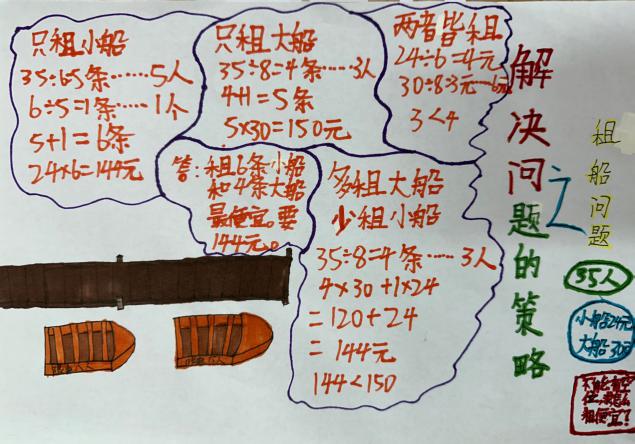 只租小船
35÷6=5条……5人
6÷5=1条……1个
5+1=6条
24×6=144元
只租大船
35÷8=4条……3人
4+1=5条
5×30=150元
两者皆租
24÷6=4元
30÷8=3元……6元
3<4
答:租6条小船
和4条大船
最便宜。要
144元。
多租大船
少租小船
35÷8=4条……3人
4×30+1×24
=120+24
=144元
144<150
解决问题的策略
之
租船问题
35人
小船24元
大船30元